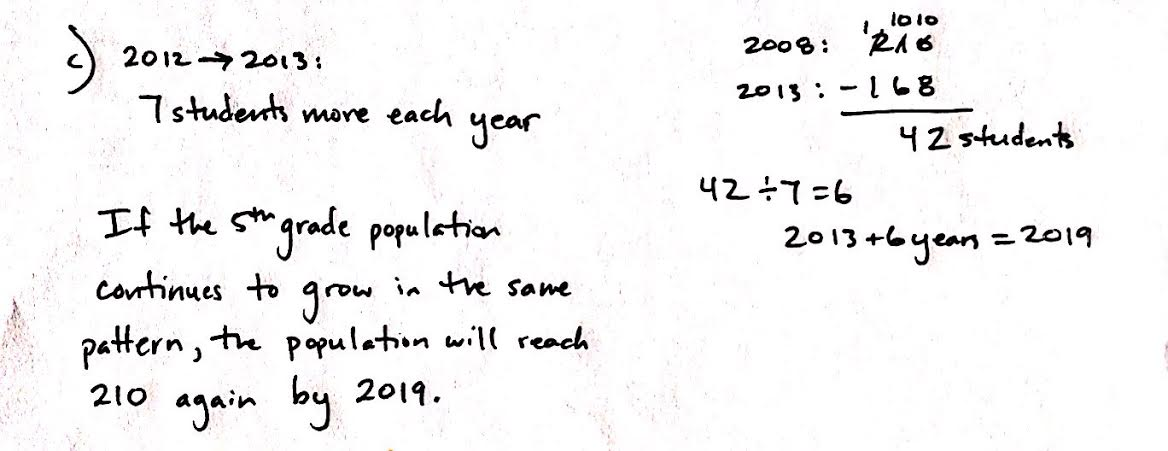 c) 2012 → 2013:
7 students more each year
If the 5th grade population
continues to grow in the same
pattern, the population will reach
210 again by 2019.
1 10 10
2008: 210
2013: - 168
42 students
42 ÷ 7 = 6
2013 + 6 years = 2019